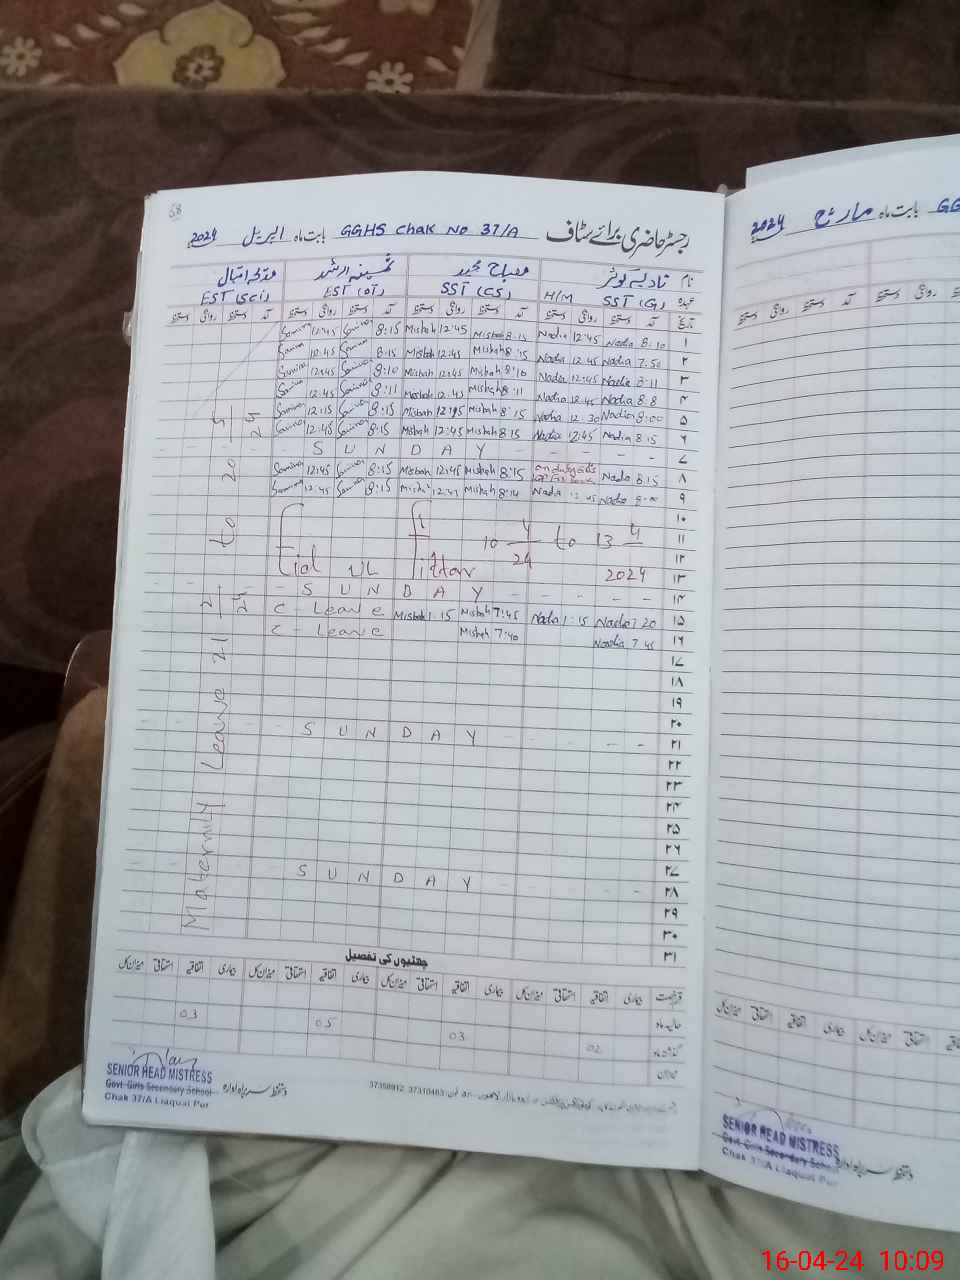 58
رجسٹر حاضری برائے سٹاف GGHS Chak No 37/A بابت ماہ اپریل 2024
نام نادیہ کوثر مصباح مجید ثمینہ ارشد
عہدہ SST (G) H/M SST (CS) EST (DT) EST (Sci)
تاریخ آمد دستخط روانگی دستخط آمد دستخط روانگی دستخط آمد دستخط روانگی دستخط آمد دستخط روانگی دستخط
۱ Nadia 8:10 Nadia 12:45 Misbah 8:15 Misbah 12:45 8:15 12:45
۲ Nadia 7:50 Nadia 12:45 Misbah 8:15 Misbah 12:45 8:15 12:45
۳ Nadia 8:11 Nadia 12:45 Misbah 8:10 Misbah 12:45 8:10 12:45
۴ Nadia 8:8 Nadia 12:45 Misbah 8:11 Misbah 12:45 8:11 12:45
۵ Nadia 8:00 Nadia 12:30 Misbah 8:15 Misbah 12:45 8:15 12:15
۶ Nadia 8:15 Nadia 12:45 Misbah 8:15 Misbah 12:45 8:15 12:45
۷ SUNDAY
۸ Nadia 8:15 Misbah 8:15 Misbah 12:45 8:15 12:45
۹ Nadia Nadia Misbah 8:15 12:45
۱۰
۱۱ 10 4/24 to 13 4
۱۲
۱۳ Eid UL Fitter 2024
۱۴ SUNDAY
۱۵ Nadia 7:20 Nadia 1:15 Misbah 7:45 Misbah 1:15 C - Leave
۱۶ Nadia 7:45 Misbah 7:40 C - Leave
۱۷
۱۸
۱۹
۲۰
۲۱ SUNDAY
۲۲
۲۳
۲۴
۲۵
۲۶
۲۷
۲۸ SUNDAY
۲۹
۳۰
۳۱
Maternity Leave 21 2/24 to 20 5/24
چھٹیوں کی تفصیل
قسم رخصت بیماری اتفاقیہ استحقاقی میزان کل بیماری اتفاقیہ استحقاقی میزان کل بیماری اتفاقیہ استحقاقی میزان کل بیماری اتفاقیہ استحقاقی میزان کل
حالیہ ماہ 05 03
گذشتہ ماہ 02 03
میزان
دستخط سربراہ ادارہ
SENIOR HEAD MISTRESS
Govt. Girls Secondary School
Chak 37/A Liaquat Pur
37310463 37358912
GG بابت ماہ مارچ 2024
آمد دستخط روانگی دستخط آمد دستخط روانگی
بیماری اتفاقیہ استحقاقی میزان کل بیماری اتفاقیہ استحقاقی میزان کل
دستخط سربراہ ادارہ
SENIOR HEAD MISTRESS
Govt. Girls Secondary School
Chak 37/A Liaquat Pur
16-04-24 10:09